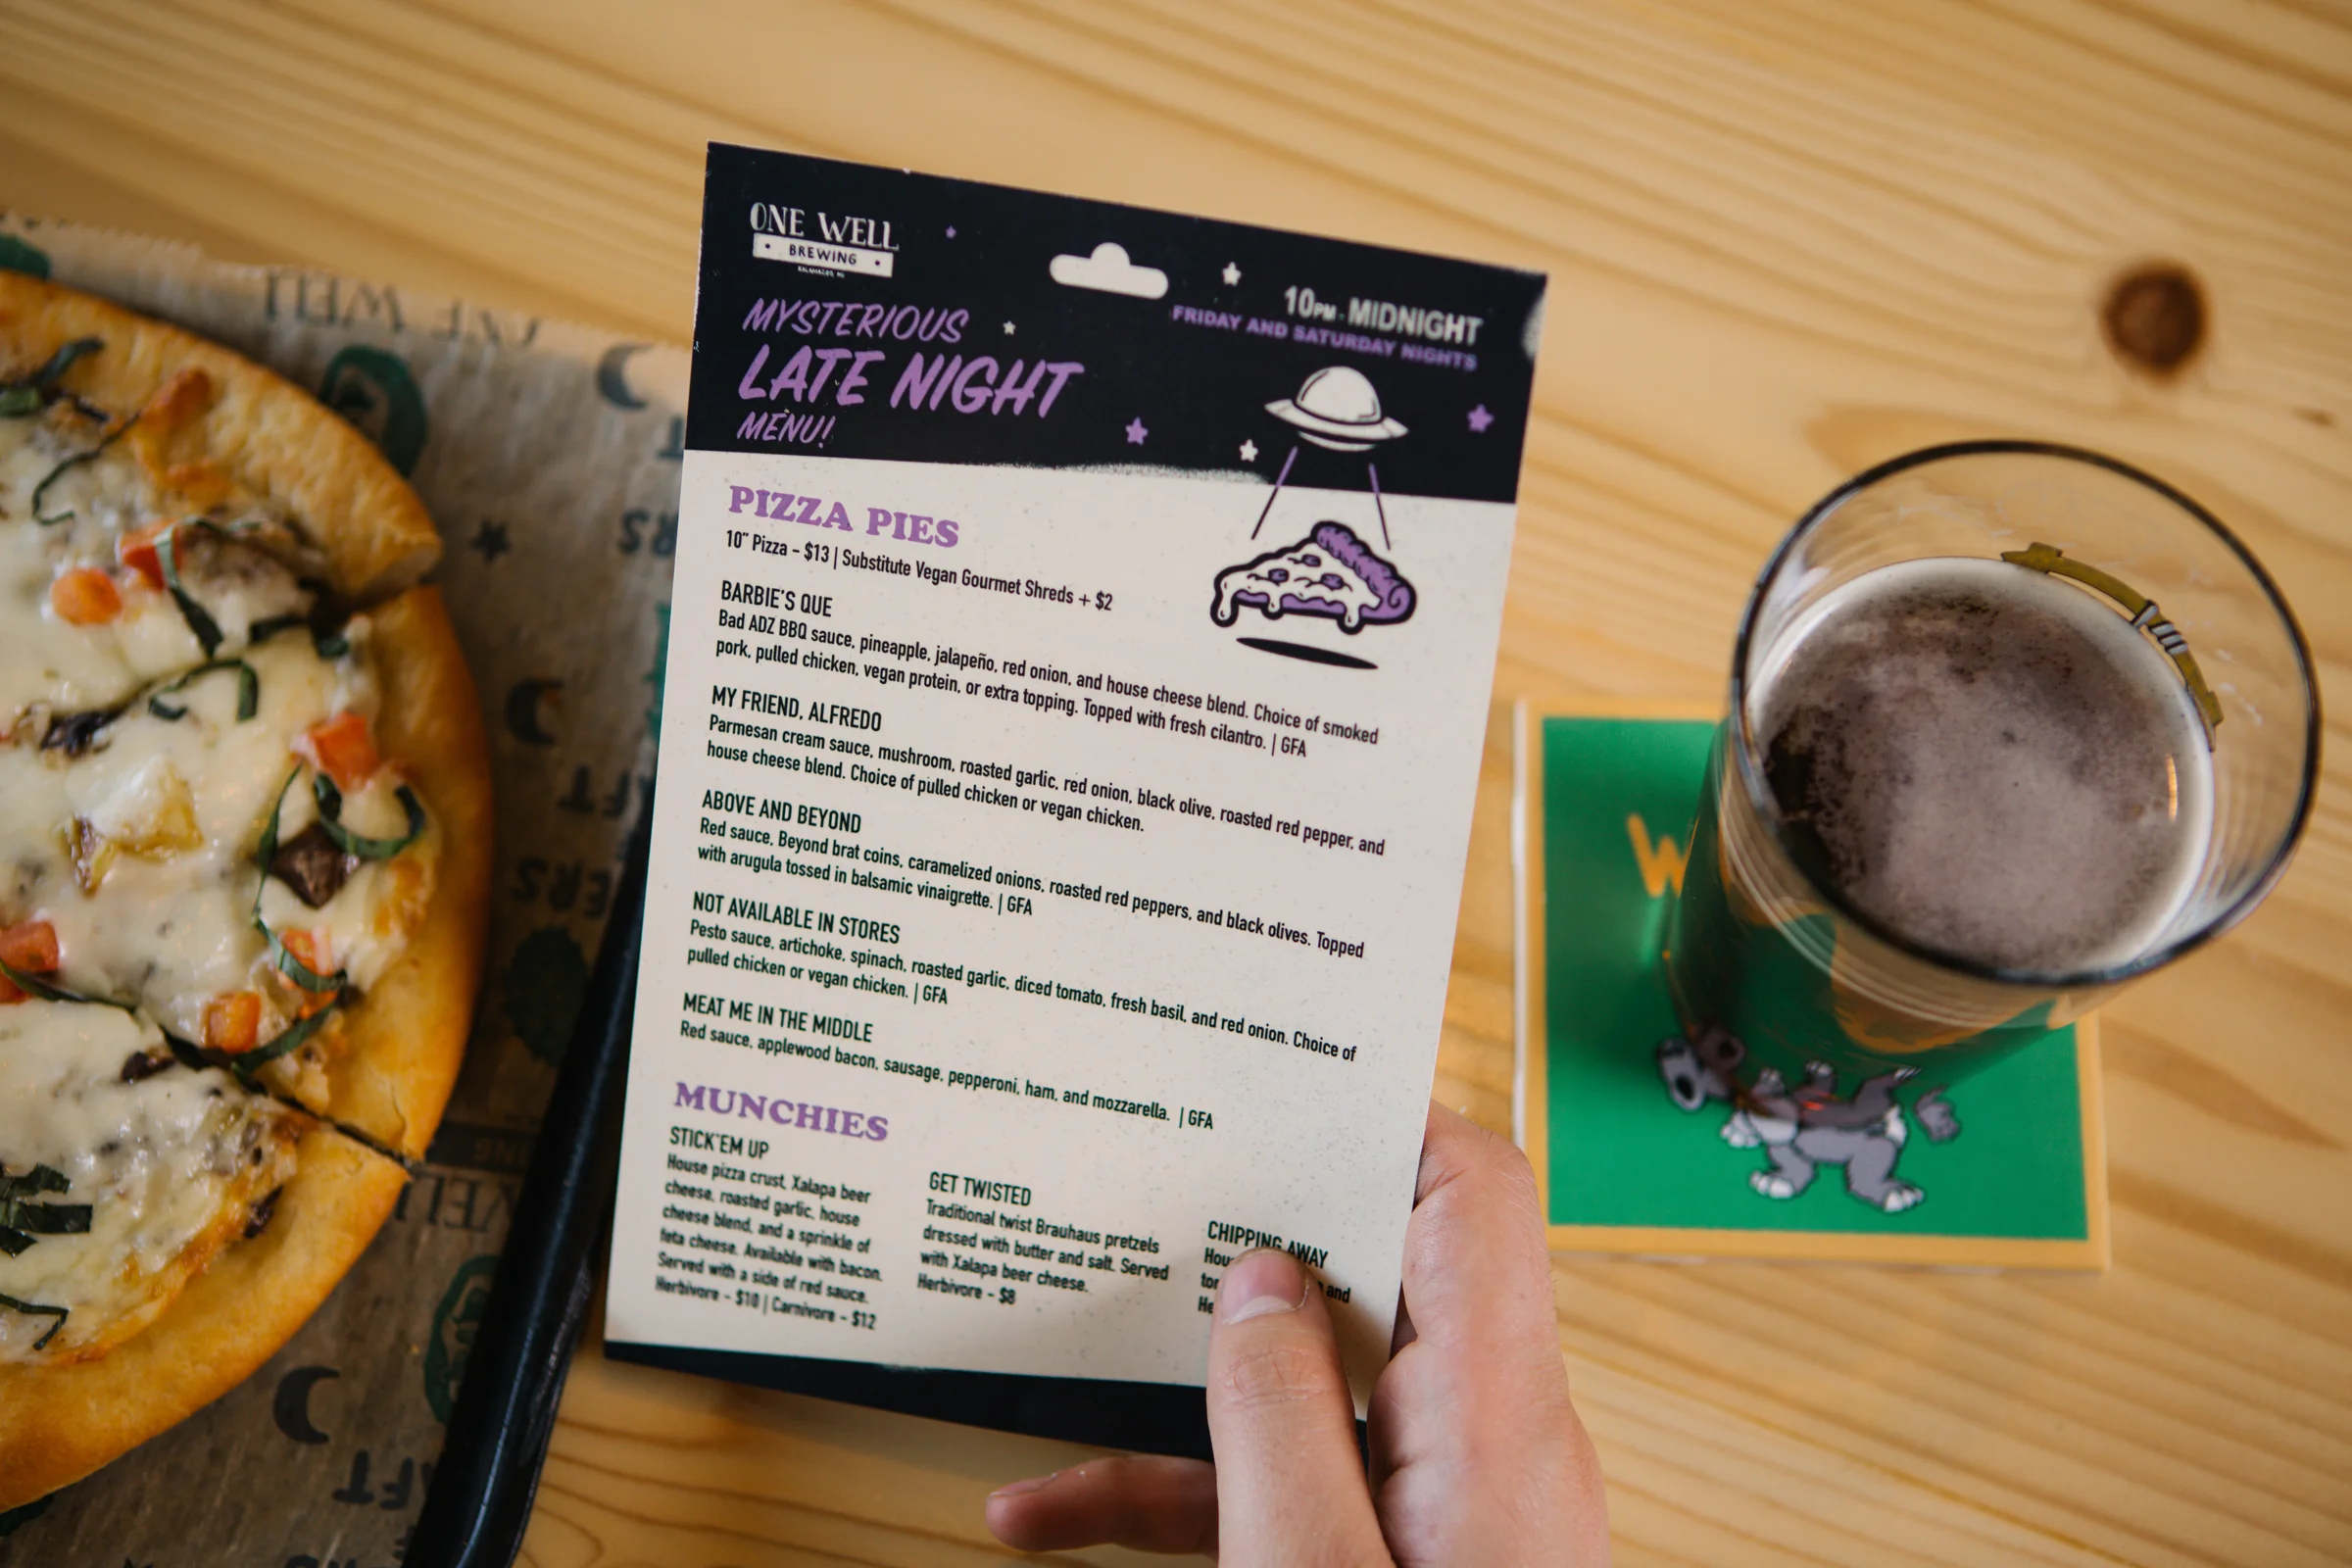 ONE WELL
BREWING
KALAMAZOO, MI
MYSTERIOUS
LATE NIGHT
MENU!
10PM - MIDNIGHT
FRIDAY AND SATURDAY NIGHTS
PIZZA PIES
10" Pizza – $13 | Substitute Vegan Gourmet Shreds + $2
BARBIE'S QUE
Bad ADZ BBQ sauce, pineapple, jalapeño, red onion, and house cheese blend. Choice of smoked
pork, pulled chicken, vegan protein, or extra topping. Topped with fresh cilantro. | GFA
MY FRIEND, ALFREDO
Parmesan cream sauce, mushroom, roasted garlic, red onion, black olive, roasted red pepper, and
house cheese blend. Choice of pulled chicken or vegan chicken.
ABOVE AND BEYOND
Red sauce, Beyond brat coins, caramelized onions, roasted red peppers, and black olives. Topped
with arugula tossed in balsamic vinaigrette. | GFA
NOT AVAILABLE IN STORES
Pesto sauce, artichoke, spinach, roasted garlic, diced tomato, fresh basil, and red onion. Choice of
pulled chicken or vegan chicken. | GFA
MEAT ME IN THE MIDDLE
Red sauce, applewood bacon, sausage, pepperoni, ham, and mozzarella. | GFA
MUNCHIES
STICK'EM UP
House pizza crust, Xalapa beer
cheese, roasted garlic, house
cheese blend, and a sprinkle of
feta cheese. Available with bacon.
Served with a side of red sauce.
Herbivore – $10 | Carnivore – $12
GET TWISTED
Traditional twist Brauhaus pretzels
dressed with butter and salt. Served
with Xalapa beer cheese.
Herbivore – $8
CHIPPING AWAY
and